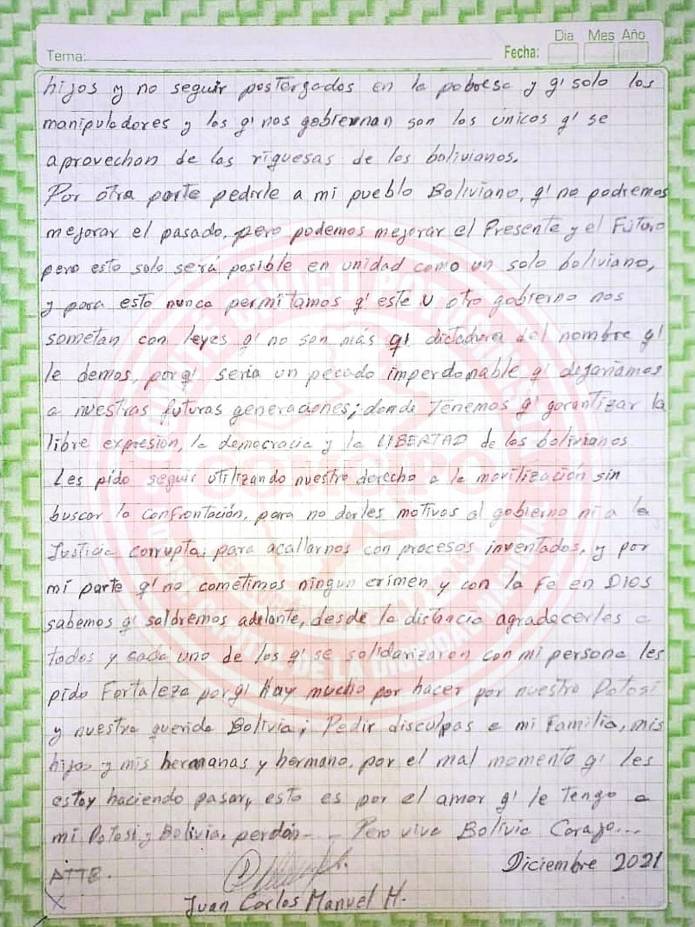 Tema:
Fecha:
Dia Mes Año
hijos y no seguir postergados en la pobresa y q' solo los
manipuladores y los q' nos gobiernan son los únicos q' se
aprovechan de las riquesas de los bolivianos.
Por otra parte pedirle a mi pueblo Boliviano, q' no podremos
mejorar el pasado, pero podemos mejorar el Presente y el Futuro
pero esto solo será posible en unidad como un solo boliviano,
y para esto nunca permitamos q' este u otro gobierno nos
sometan con leyes q' no son más q' dictadura del nombre q'
le demos, porq' seria un pecado imperdonable q' dejariamos
a nuestras futuras generaciones; donde Tenemos q' garantizar la
libre expresión, la democracia y la LIBERTAD de los bolivianos.
Les pido seguir utilizando nuestro derecho a la movilización sin
buscar la confrontación, para no darles motivos al gobierno ni a la
Justicia corrupta, para acallarnos con procesos inventados, y por
mi parte q' no cometimos ningun crimen y con la Fe en DIOS
sabemos q' saldremos adelante, desde la distancia agradecerles a
todos y cada uno de los q' se solidarizaron con mi persona les
pido Fortaleza porq' Hay mucho por hacer por nuestro Potosi
y nuestra querida Bolivia; Pedir disculpas a mi Familia, mis
hijos y mis hermanas y hermano, por el mal momento q' les
estoy haciendo pasar, esto es por el amor q' le Tengo a
mi Potosi y Bolivia, perdón... Pero viva Bolivia Carajo...
ATTE.
Diciembre 2021
Juan Carlos Manuel H.
COMCIPO